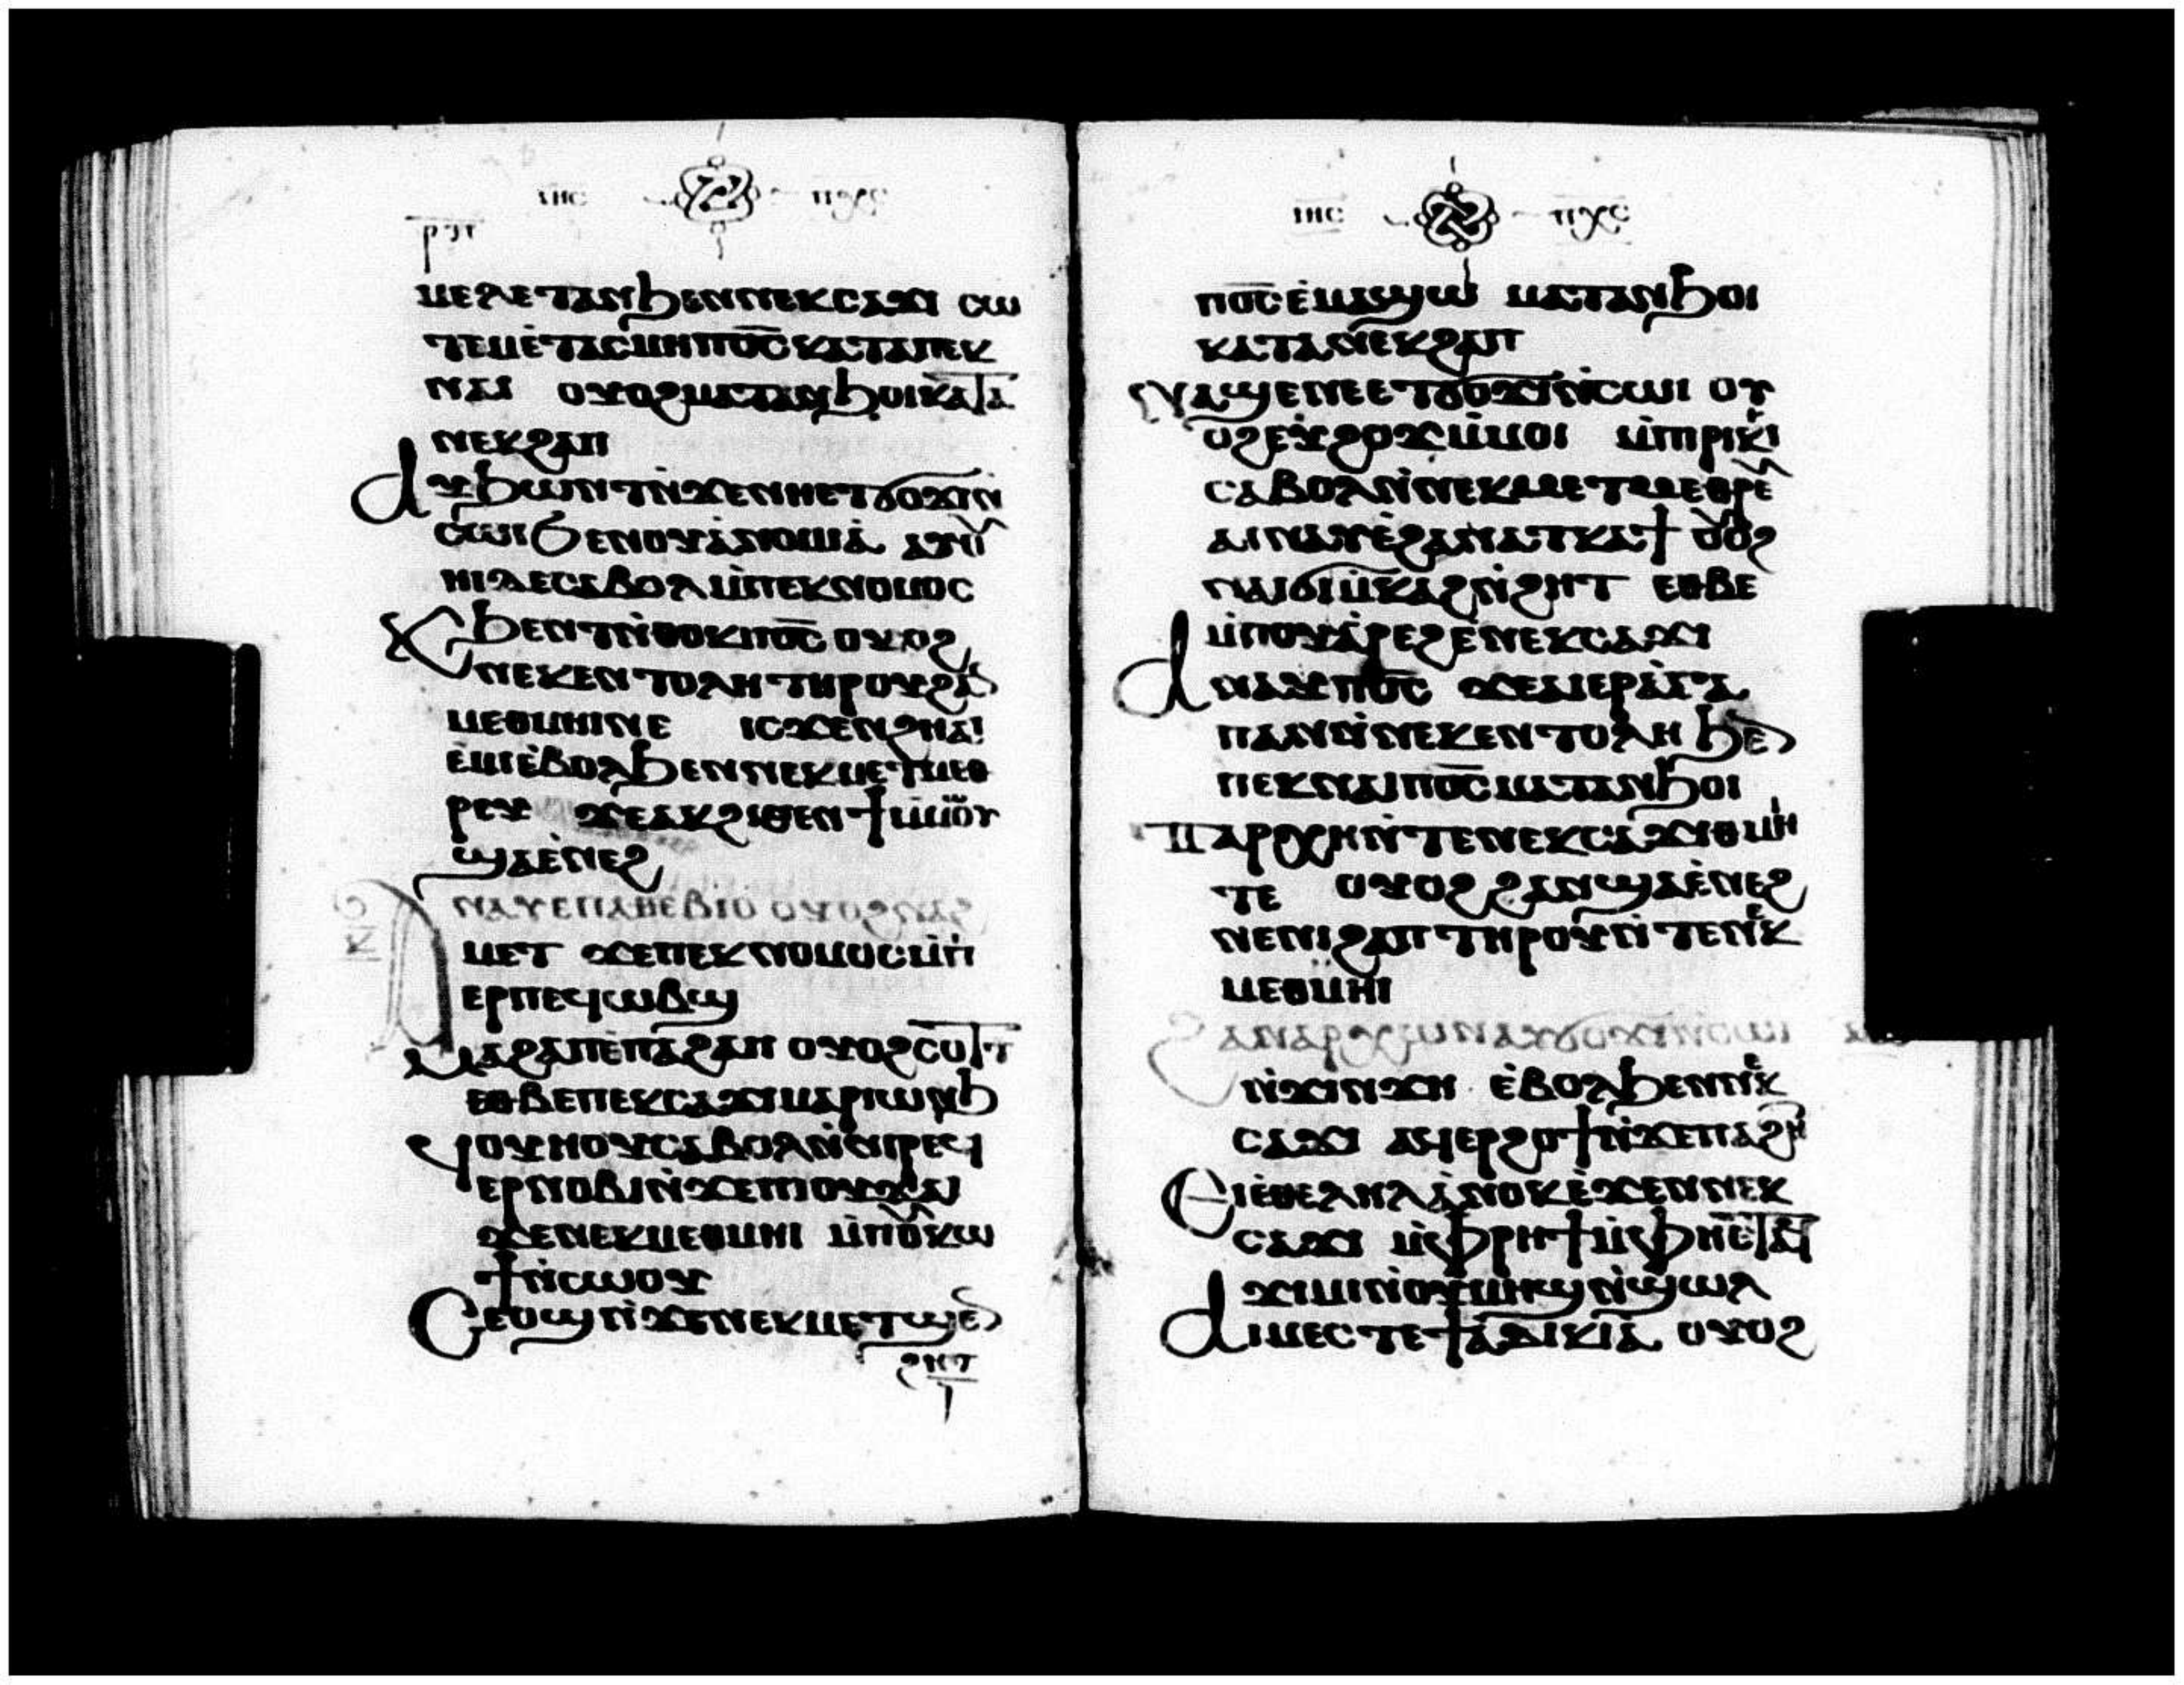 ⲓⲏⲥ ⲡⲭⲥ
ⲙⲉⲗⲉⲧⲁⲛϧⲉⲛⲛⲉⲕⲥⲁϫⲓ ⲥⲱ
ⲧⲉⲙⲉ̀ⲧⲁⲥⲙⲏⲡⲟ̅ⲥ̅ⲕⲁⲧⲁⲡⲉⲕ
ⲛⲁⲓ ⲟⲩⲟϩⲙⲁⲧⲁⲛϧⲟⲓⲕⲁⲧⲁ
ⲛⲉⲕϩⲁⲡ
ⲁⲩϧⲱⲛⲧⲛ̀ϫⲉⲛⲏⲉⲧϭⲟϫⲓⲛ̀
ⲥⲱⲓϧⲉⲛⲟⲩⲁ̀ⲛⲟⲙⲓⲁ̀ ⲁⲩⲟⲩ
ⲏⲓⲇⲉⲥⲁⲃⲟⲗⲙ̀ⲡⲉⲕⲛⲟⲙⲟⲥ
ⲕϧⲉⲛⲧⲛ̀ⲑⲟⲕⲡⲟ̅ⲥ̅ ⲟⲩⲟϩ
ⲛⲉⲕⲉⲛⲧⲟⲗⲏⲧⲏⲣⲟⲩϩⲁⲛ
ⲙⲉⲑⲙⲏⲓⲛⲉ ⲓⲥϫⲉⲛϩⲏⲁⲓ
ⲉ̀ⲙⲓⲉ̀ⲃⲟⲗϧⲉⲛⲛⲉⲕⲙⲉⲧⲙⲉⲑ
ⲣⲉⲩ ϫⲉⲁⲕϩⲓⲥⲉⲛϯⲙ̀ⲙⲱⲟⲩ
ϣⲁⲉ̀ⲛⲉϩ
ⲁⲛⲁⲩⲉⲡⲁⲑⲉⲃⲓⲟ ⲟⲩⲟϩⲛⲁϩ
ⲙⲉⲧ ϫⲉⲡⲉⲕⲛⲟⲙⲟⲥⲙ̀ⲡ
ⲉⲣⲡⲉϥⲱⲃϣ
ⲙⲁϩⲁⲡⲉ̀ⲡⲁϩⲁⲡ ⲟⲩⲟϩⲥⲟⲧⲧ
ⲉⲑⲃⲉⲡⲉⲕⲥⲁϫⲓⲙⲁⲣⲓⲱⲛϧ
ϥⲟⲩⲏⲟⲩⲥⲁⲃⲟⲗⲛ̀ⲛⲓⲣⲉϥ
ⲉⲣⲛⲟⲃⲓⲛ̀ϫⲉⲡⲓⲟⲩϫⲁⲓ
ϫⲉⲛⲉⲕⲙⲉⲑⲙⲏⲓ ⲙ̀ⲡⲟⲩⲕⲱ
ϯⲛ̀ⲥⲱⲟⲩ
ⲥⲉⲟϣⲛ̀ϫⲉⲛⲉⲕⲙⲉⲧϣⲉⲛ
ϩⲏⲧ
ⲓⲏⲥ ⲡⲭⲥ
ⲡⲟ̅ⲥ̅ⲉ̀ⲙⲁϣⲱ ⲙⲁⲧⲁⲛϧⲟⲓ
ⲕⲁⲧⲁⲛⲉⲕϩⲁⲡ
ⲛⲁϣⲉⲛⲏⲉⲧϭⲟϫⲓⲛ̀ⲥⲱⲓ ⲟⲩ
ⲟϩⲉⲩϩⲟϫϩⲉϫⲙ̀ⲙⲟⲓ ⲙ̀ⲡⲓⲣⲓⲕⲓ
ⲥⲁⲃⲟⲗⲛ̀ⲛⲉⲕⲙⲉⲧⲙⲉⲑⲣⲉⲩ
ⲁⲓⲛⲁⲩⲉ̀ϩⲁⲛⲁⲧⲕⲁϯ ⲟⲩⲟϩ
ⲛⲁⲓϭⲓⲙ̀ⲕⲁϩⲛ̀ϩⲏⲧ ⲉⲑⲃⲉ
ⲙ̀ⲡⲟⲩⲁ̀ⲣⲉϩⲉ̀ⲛⲉⲕⲥⲁϫⲓ
ⲁⲛⲁⲩⲡⲟ̅ⲥ̅ ϫⲉⲁⲓⲉⲣⲁ̀ⲅⲁ
ⲡⲁⲛⲛ̀ⲛⲉⲕⲉⲛⲧⲟⲗⲏ ϧⲉⲛ
ⲡⲉⲕⲛⲁⲓⲡⲟ̅ⲥ̅ⲙⲁⲧⲁⲛϧⲟⲓ
ⲧⲁⲣⲭⲏⲛ̀ⲧⲉⲛⲉⲕⲥⲁϫⲓⲑⲙⲏⲓ
ⲧⲉ ⲟⲩⲟϩ ϩⲁⲛϣⲁⲉ̀ⲛⲉϩ
ⲛⲉⲛⲓϩⲁⲡ ⲧⲏⲣⲟⲩⲛ̀ⲧⲉⲧⲉⲕ
ⲙⲉⲑⲙⲏⲓ
ϩⲁⲛⲁⲣⲭⲱⲛⲁⲩϭⲟϫⲓⲛ̀ⲥⲱⲓ
ⲛ̀ϫⲓⲛϫⲏ ⲉ̀ⲃⲟⲗϧⲉⲛⲛⲉⲕ
ⲥⲁϫⲓ ⲁϥⲉⲣϩⲟϯⲛ̀ϫⲉⲡⲁϩⲏⲧ
ⲉⲓⲉ̀ⲑⲉⲗⲏⲗⲁ̀ⲛⲟⲕⲉ̀ϫⲉⲛⲛⲉⲕ
ⲥⲁϫⲓ ⲙ̀ⲫⲣⲏϯⲙ̀ⲫⲏⲉⲧⲁϥ
ϫⲓⲙⲓⲛ̀ⲟⲩⲙⲏϣⲛ̀ϣⲱⲗ
ⲁⲓⲙⲉⲥⲧⲉϯⲁ̀ⲇⲓⲕⲓⲁ ⲟⲩⲟϩ